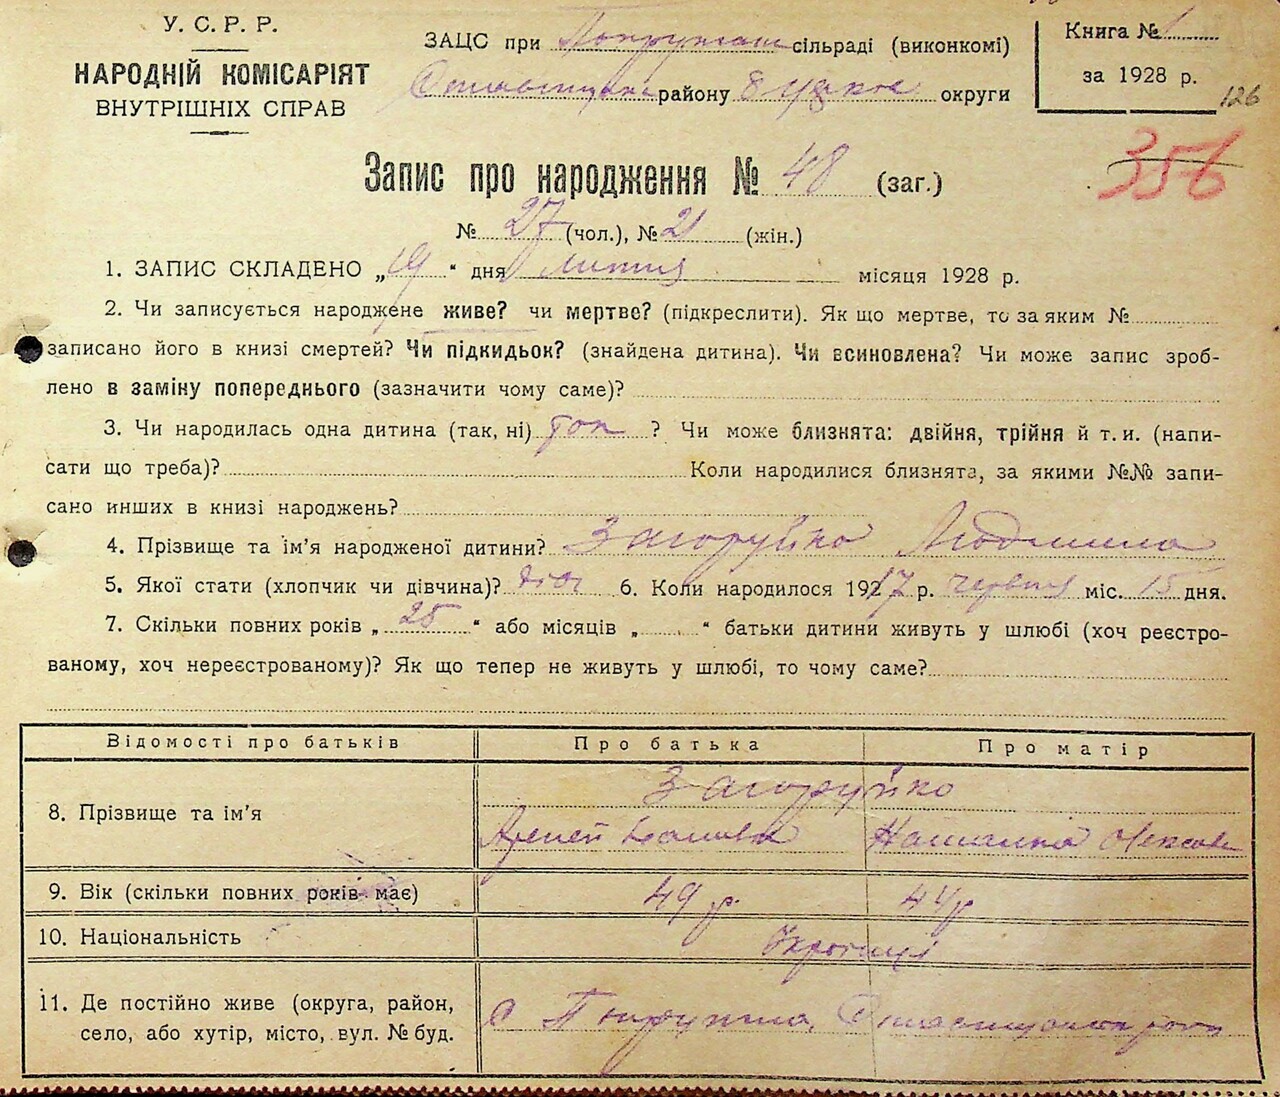 У. С. Р. Р.
НАРОДНІЙ КОМІСАРІЯТ
ВНУТРІШНІХ СПРАВ
ЗАЦС при сільраді (виконкомі)
району округи
Книга № 1
за 1928 р.
126
356
Запис про народження № 48 (заг.)
№ 27 (чол.), № 21 (жін.)
1. ЗАПИС СКЛАДЕНО „19“ дня місяця 1928 р.
2. Чи записується народжене живе? чи мертве? (підкреслити). Як що мертве, то за яким №
записано його в книзі смертей? Чи підкидьок? (знайдена дитина). Чи всиновлена? Чи може запис зроб-
лено в заміну попереднього (зазначити чому саме)?
3. Чи народилась одна дитина (так, ні) ? Чи може близнята: двійня, трійня й т. и. (напи-
сати що треба)? Коли народилися близнята, за якими №№ запи-
сано инших в книзі народжень?
4. Прізвище та ім’я народженої дитини? Загоруйко Людмила
5. Якої стати (хлопчик чи дівчина)? 6. Коли народилось 1927 р. червня міс. 15 дня.
7. Скільки повних років „25“ або місяців „ “ батьки дитини живуть у шлюбі (хоч реєстро-
ваному, хоч нереєстрованому)? Як що тепер не живуть у шлюбі, то чому саме?
Відомості про батьків Про батька Про матір
8. Прізвище та ім’я Загоруйко
9. Вік (скільки повних років має) 49 р. 44 р
10. Національність Українці
11. Де постійно живе (округа, район,
село, або хутір, місто, вул. № буд.